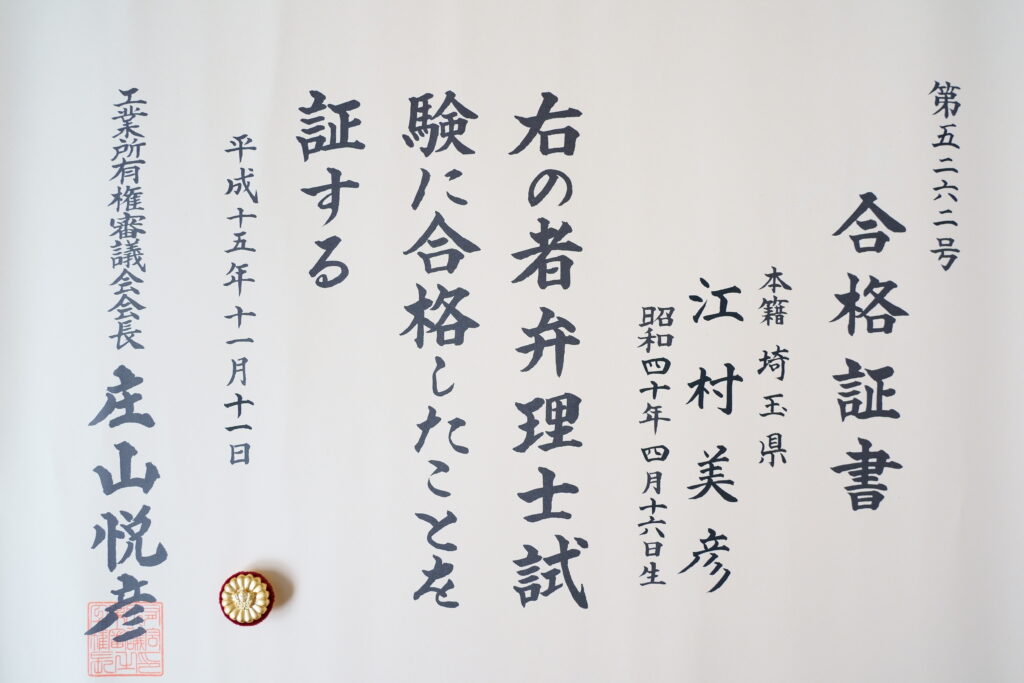 第五二六二号
合格証書
本籍 埼玉県
江村美彦
昭和四十年四月十六日生
右の者弁理士試
験に合格したことを
証する
平成十五年十一月十一日
工業所有権審議会会長 庄山悦彦